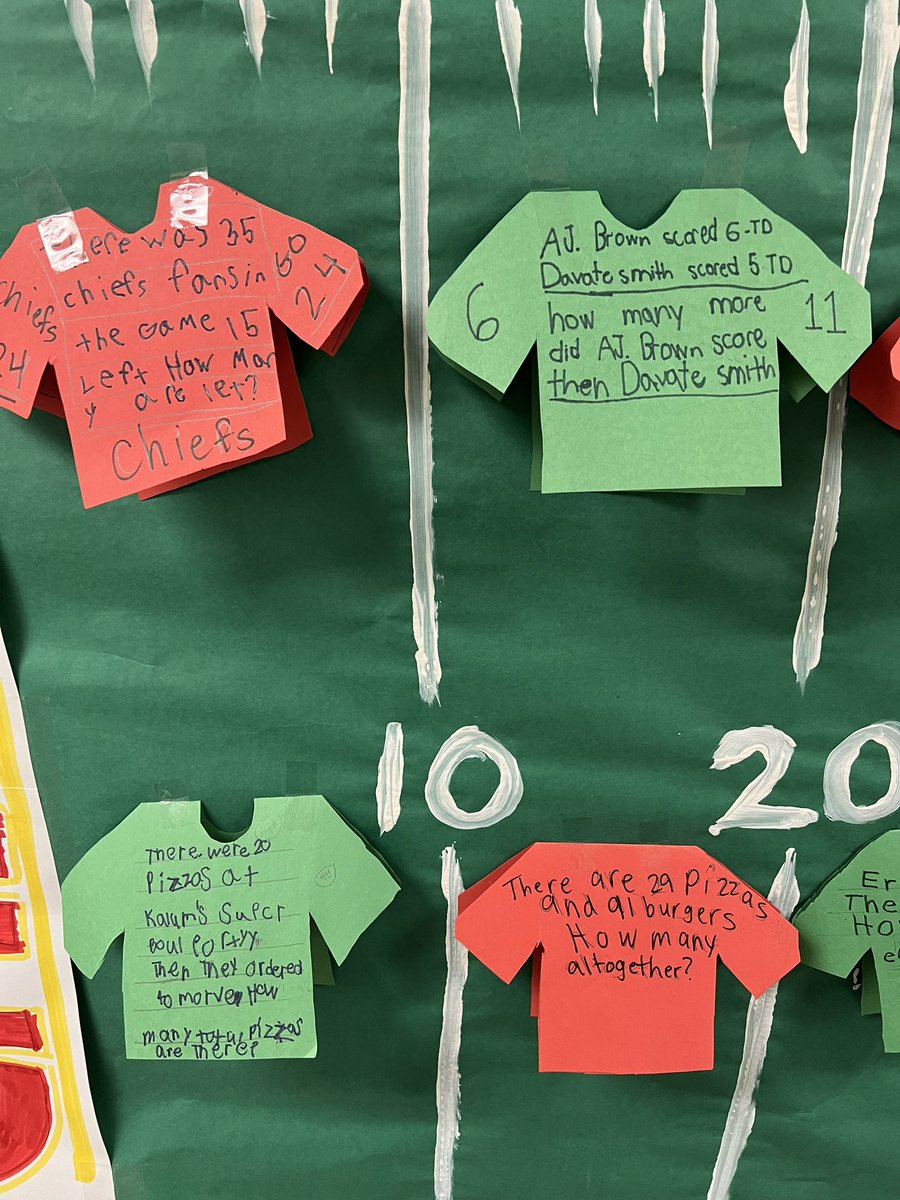 ere was 35
chiefs fans in
the Game 15
Left How Man
y are left?
Chiefs
Chiefs
24
24
A.J. Brown scored 6-TD
Davate smith scored 5 TD
how many more
did A.J. Brown score
then Davate smith
6
11
10
20
There were 20
Pizzas at
Super
Then They ordered
How
many total pizzas
are There?
There are 29 Pizzas
and 91 burgers
How many
altogether?
Er
The
Ho